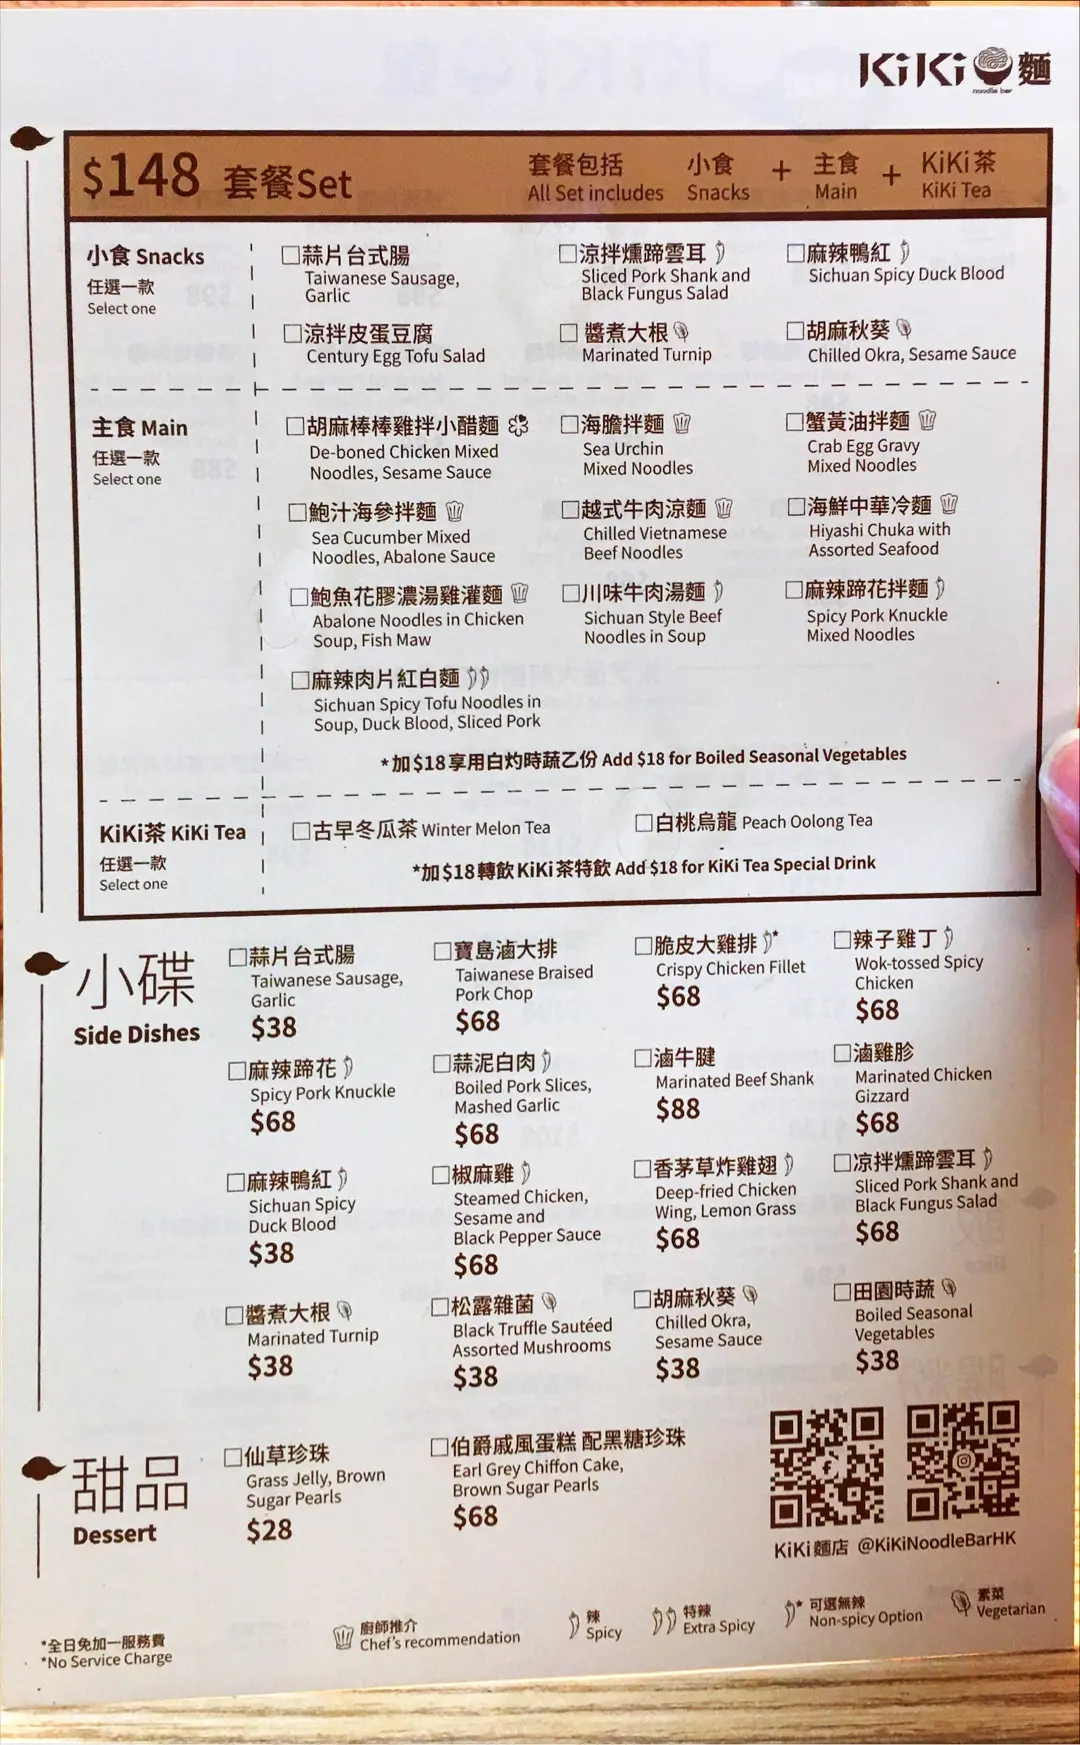 KiKi 麵
noodle bar
$148 套餐Set
套餐包括 小食 + 主食 + KiKi茶
All Set includes Snacks Main KiKi Tea
小食 Snacks
任選一款
Select one
□蒜片台式腸
Taiwanese Sausage,
Garlic
□涼拌燻蹄雲耳
Sliced Pork Shank and
Black Fungus Salad
□麻辣鴨紅
Sichuan Spicy Duck Blood
□涼拌皮蛋豆腐
Century Egg Tofu Salad
□ 醬煮大根
Marinated Turnip
□胡麻秋葵
Chilled Okra, Sesame Sauce
主食 Main
任選一款
Select one
□胡麻棒棒雞拌小醋麵
De-boned Chicken Mixed
Noodles, Sesame Sauce
□海膽拌麵
Sea Urchin
Mixed Noodles
□蟹黃油拌麵
Crab Egg Gravy
Mixed Noodles
□鮑汁海參拌麵
Sea Cucumber Mixed
Noodles, Abalone Sauce
□越式牛肉涼麵
Chilled Vietnamese
Beef Noodles
□海鮮中華冷麵
Hiyashi Chuka with
Assorted Seafood
□鮑魚花膠濃湯雞灌麵
Abalone Noodles in Chicken
Soup, Fish Maw
□川味牛肉湯麵
Sichuan Style Beef
Noodles in Soup
□麻辣蹄花拌麵
Spicy Pork Knuckle
Mixed Noodles
□麻辣肉片紅白麵
Sichuan Spicy Tofu Noodles in
Soup, Duck Blood, Sliced Pork
*加$18享用白灼時蔬乙份 Add $18 for Boiled Seasonal Vegetables
KiKi茶 KiKi Tea
任選一款
Select one
□古早冬瓜茶 Winter Melon Tea
□白桃烏龍 Peach Oolong Tea
*加$18轉飲KiKi茶特飲 Add $18 for KiKi Tea Special Drink
小碟
Side Dishes
□蒜片台式腸
Taiwanese Sausage,
Garlic
$38
□寶島滷大排
Taiwanese Braised
Pork Chop
$68
□脆皮大雞排*
Crispy Chicken Fillet
$68
□辣子雞丁
Wok-tossed Spicy
Chicken
$68
□麻辣蹄花
Spicy Pork Knuckle
$68
□蒜泥白肉
Boiled Pork Slices,
Mashed Garlic
$68
□滷牛腱
Marinated Beef Shank
$88
□滷雞胗
Marinated Chicken
Gizzard
$68
□麻辣鴨紅
Sichuan Spicy
Duck Blood
$38
□椒麻雞
Steamed Chicken,
Sesame and
Black Pepper Sauce
$68
□香茅草炸雞翅
Deep-fried Chicken
Wing, Lemon Grass
$68
□凉拌燻蹄雲耳
Sliced Pork Shank and
Black Fungus Salad
$68
□醬煮大根
Marinated Turnip
$38
□松露雜菌
Black Truffle Sautéed
Assorted Mushrooms
$38
□胡麻秋葵
Chilled Okra,
Sesame Sauce
$38
□田園時蔬
Boiled Seasonal
Vegetables
$38
甜品
Dessert
□仙草珍珠
Grass Jelly, Brown
Sugar Pearls
$28
□伯爵戚風蛋糕 配黑糖珍珠
Earl Grey Chiffon Cake,
Brown Sugar Pearls
$68
KiKi麵店 @KiKiNoodleBarHK
*全日免加一服務費
*No Service Charge
廚師推介
Chef's recommendation
辣
Spicy
特辣
Extra Spicy
* 可選無辣
Non-spicy Option
素菜
Vegetarian